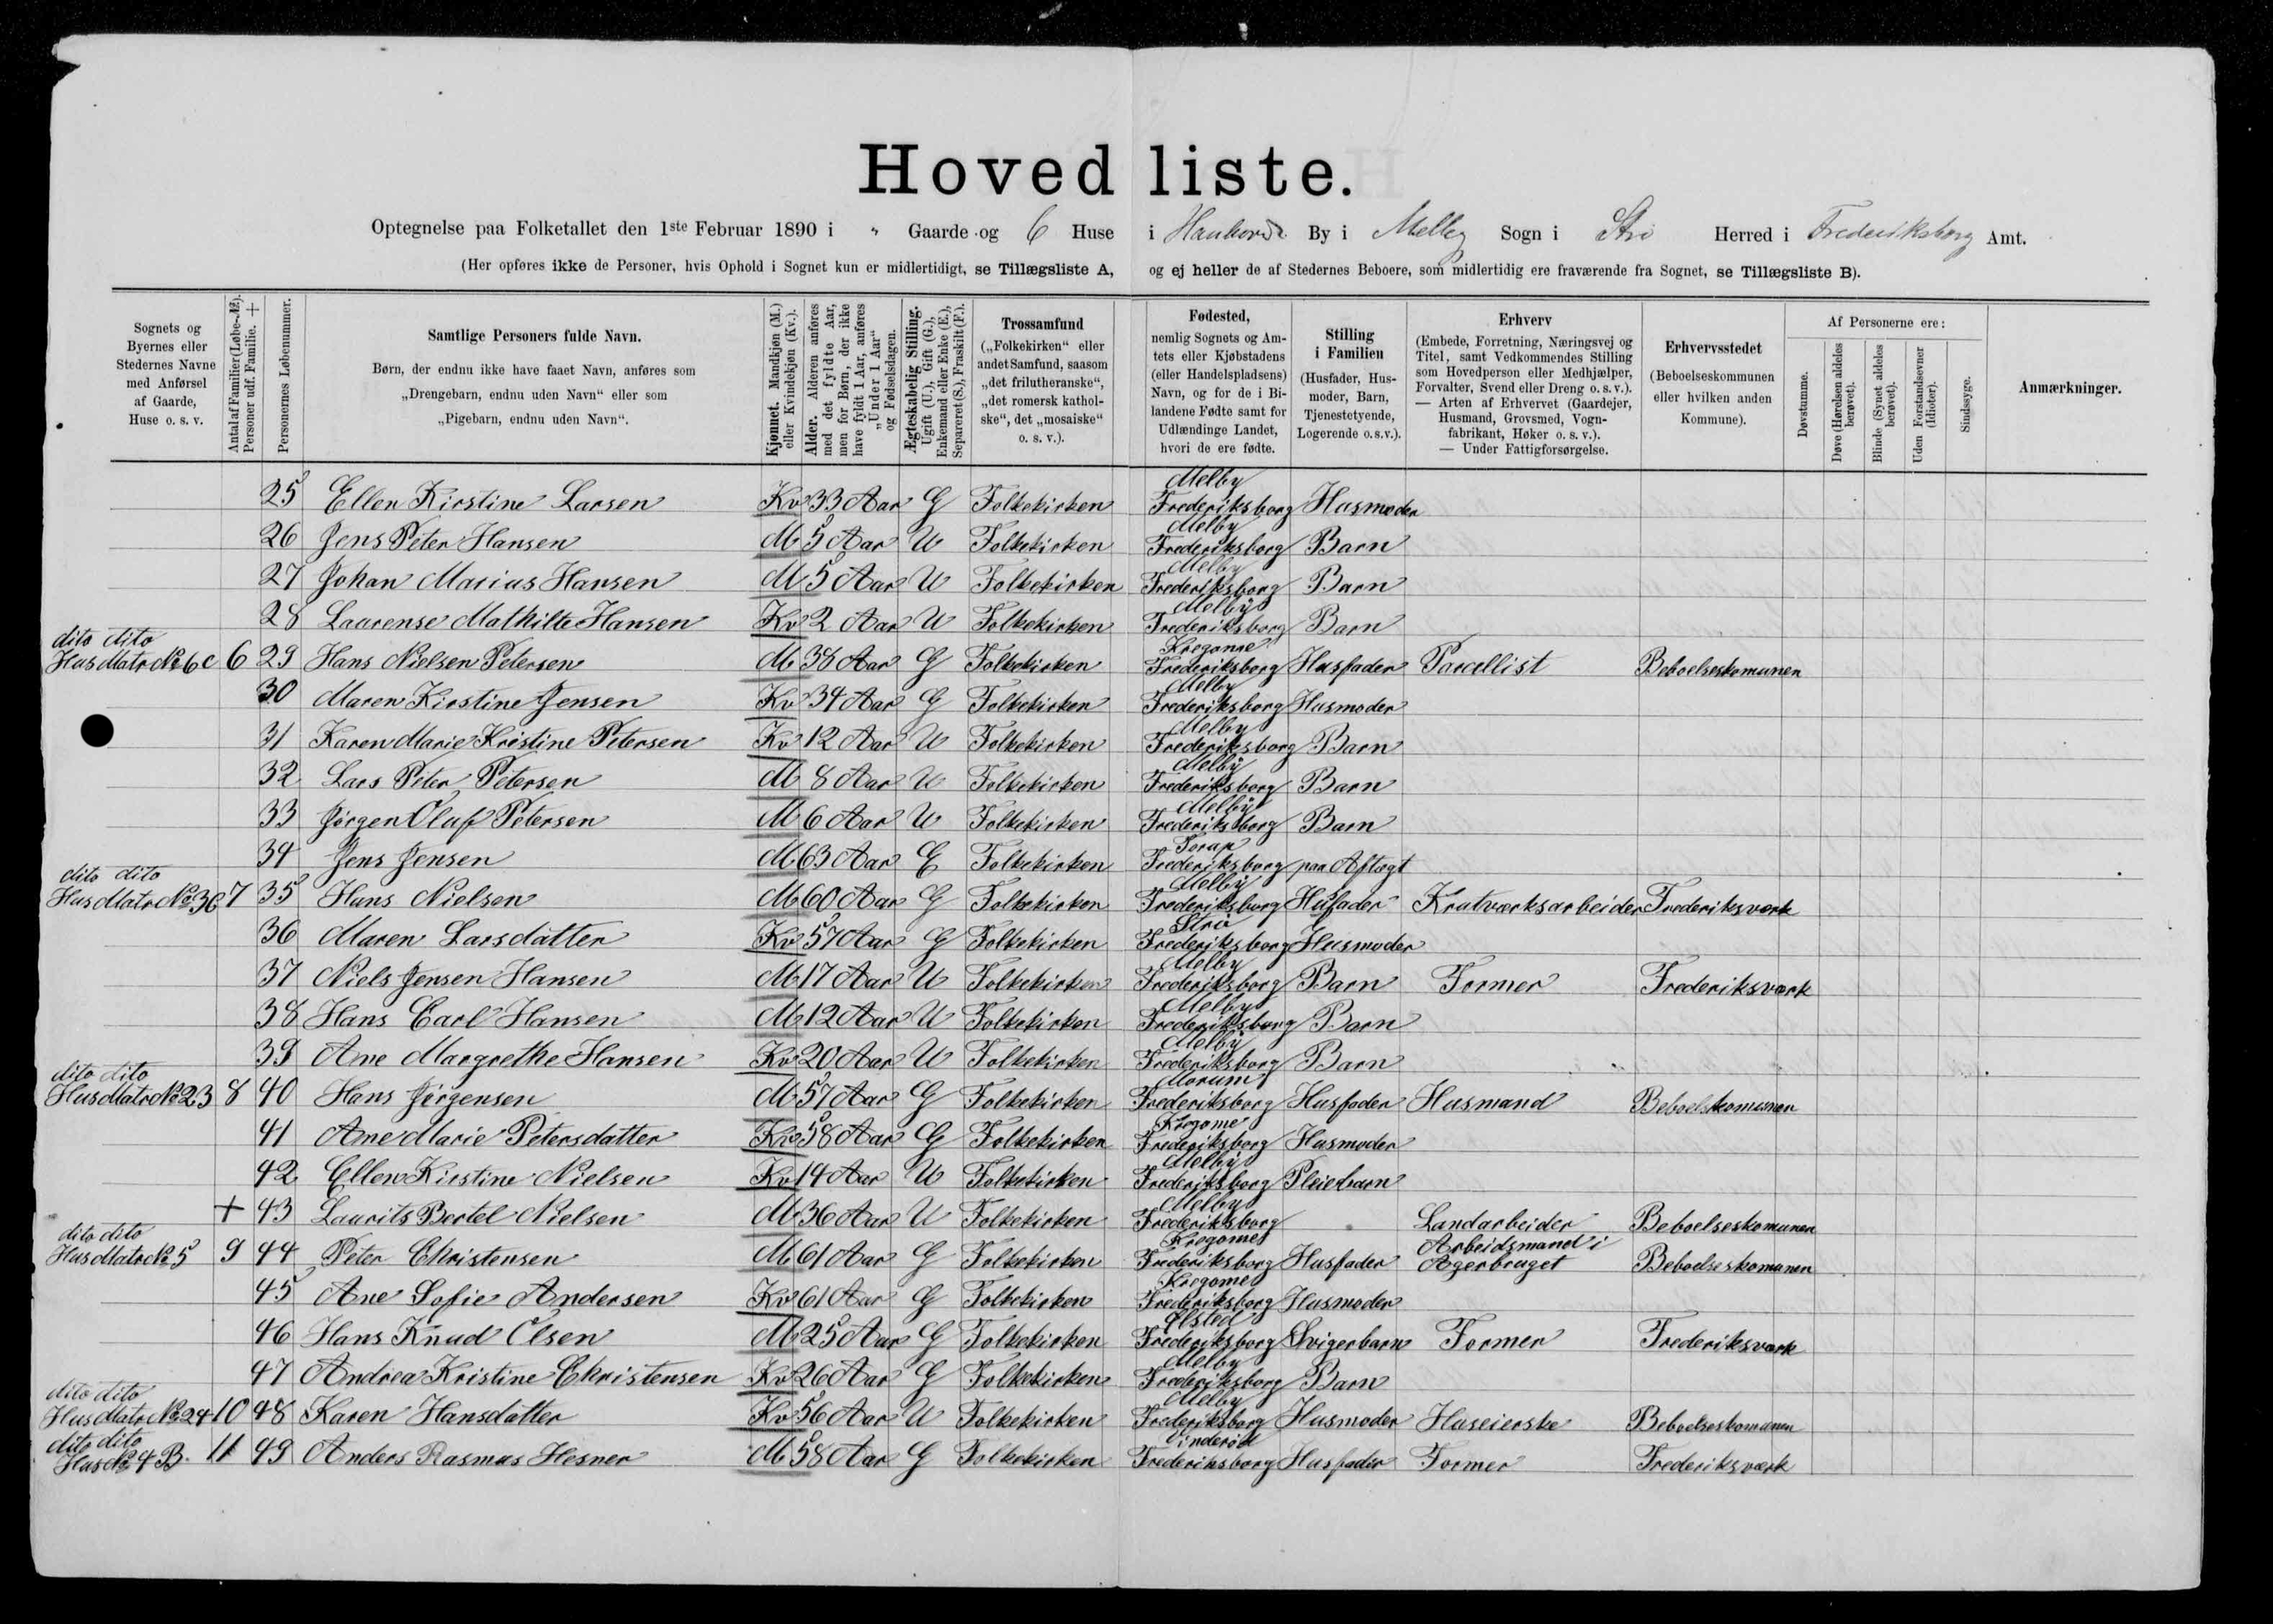 Hovedliste.
Optegnelse paa Folketallet den 1ste Februar 1890 i „ Gaarde og 6 Huse i By i Melby Sogn i Strø Herred i Frederiksborg Amt.
(Her opføres ikke de Personer, hvis Ophold i Sognet kun er midlertidigt, se Tillægsliste A, og ej heller de af Stedernes Beboere, som midlertidig ere fraværende fra Sognet, se Tillægsliste B).
Sognets og Byernes eller Stedernes Navne med Anførsel af Gaarde, Huse o. s. v.
Antal af Familier (Løbe-№). Personer udf. Familie. +
Personernes Løbenummer.
Samtlige Personers fulde Navn.
Børn, der endnu ikke have faaet Navn, anføres som „Drengebarn, endnu uden Navn“ eller som „Pigebarn, endnu uden Navn“.
Kjønnet. Mandkjøn (M.) eller Kvindekjøn (Kv.).
Alder. Alderen anføres med det fyldte Aar, men for Børn, der ikke have fyldt 1 Aar, anføres „Under 1 Aar“ og Fødselsdagen.
Ægteskabelig Stilling. Ugift (U.), Gift (G.), Enkemand eller Enke (E.), Separeret (S.), Fraskilt (F.).
Trossamfund („Folkekirken“ eller andet Samfund, saasom „det frilutheranske“, „det romersk katholske“, det „mosaiske“ o. s. v.).
Fødested, nemlig Sognets og Amtets eller Kjøbstadens (eller Handelspladsens) Navn, og for de i Bilandene Fødte samt for Udlændinge Landet, hvori de ere fødte.
Stilling i Familien (Husfader, Husmoder, Barn, Tjenestetyende, Logerende o.s.v.).
Erhverv (Embede, Forretning, Næringsvej og Titel, samt Vedkommendes Stilling som Hovedperson eller Medhjælper, Forvalter, Svend eller Dreng o. s. v.). — Arten af Erhvervet (Gaardejer, Husmand, Grovsmed, Vognfabrikant, Høker o. s. v.). — Under Fattigforsørgelse.
Erhvervsstedet (Beboelseskommunen eller hvilken anden Kommune).
Af Personerne ere:
Døvstumme.
Døve (Hørelsen aldeles berøvet).
Blinde (Synet aldeles berøvet).
Uden Forstandsevner (Idioter).
Sindssyge.
Anmærkninger.
25 Ellen Kirstine Larsen Kv 33 Aar G Folkekirken Melby Frederiksborg Husmoder
26 Jens Peter Hansen M 5 Aar U Folkekirken Melby Frederiksborg Barn
27 Johan Marius Hansen M 5 Aar U Folkekirken Melby Frederiksborg Barn
28 Laurense Mathilte Hansen Kv 2 Aar U Folkekirken Melby Frederiksborg Barn
dito dito Hus Matr № 6c 6 29 Hans Nielsen Petersen M 38 Aar G Folkekirken Kregome Frederiksborg Husfader Parcellist Beboelseskomunen
30 Maren Kirstine Jensen Kv 34 Aar G Folkekirken Melby Frederiksborg Husmoder
31 Karen Marie Kristine Petersen Kv 12 Aar U Folkekirken Melby Frederiksborg Barn
32 Lars Peter Petersen M 8 Aar U Folkekirken Melby Frederiksborg Barn
33 Jørgen Oluf Petersen M 6 Aar U Folkekirken Melby Frederiksborg Barn
34 Jens Jensen M 63 Aar E Folkekirken Torup Frederiksborg paa Aftægt
dito dito Hus Matr № 7 35 Hans Nielsen M 60 Aar G Folkekirken Melby Frederiksborg Husfader Krutværksarbeider Frederiksværk
36 Maren Larsdatter Kv 57 Aar G Folkekirken Strø Frederiksborg Husmoder
37 Niels Jensen Hansen M 17 Aar U Folkekirken Melby Frederiksborg Barn Former Frederiksværk
38 Hans Carl Hansen M 12 Aar U Folkekirken Melby Frederiksborg Barn
39 Ane Margrethe Hansen Kv 20 Aar U Folkekirken Melby Frederiksborg Barn
dito dito Hus Matr № 23 8 40 Hans Jørgensen M 57 Aar G Folkekirken Morum Frederiksborg Husfader Husmand Beboelskomunen
41 Ane Marie Petersdatter Kv 58 Aar G Folkekirken Kregome Frederiksborg Husmoder
42 Ellen Kirstine Nielsen Kv 14 Aar U Folkekirken Melby Frederiksborg Pleiebarn
+ 43 Laurits Bertel Nielsen M 36 Aar U Folkekirken Melby Frederiksborg Landarbeider Beboelseskomunen
dito dito Hus Matr № 5 9 44 Peter Christensen M 61 Aar G Folkekirken Kregome Frederiksborg Husfader Arbeidsmand i Agerbruget Beboelseskomunen
45 Ane Sofie Andersen Kv 61 Aar G Folkekirken Kregome Frederiksborg Husmoder
46 Hans Knud Olsen M 25 Aar G Folkekirken Ølsted Frederiksborg Svigerbarn Former Frederiksværk
47 Andrea Kristine Christensen Kv 26 Aar G Folkekirken Melby Frederiksborg Barn
dito dito Hus Matr № 24 10 48 Karen Hansdatter Kv 56 Aar U Folkekirken Melby Frederiksborg Husmoder Huseierske Beboelseskomunen
dito dito Hus № 4 B. 11 49 Anders Rasmus Hesner M 58 Aar G Folkekirken Vinderød Frederiksborg Husfader Former Frederiksværk